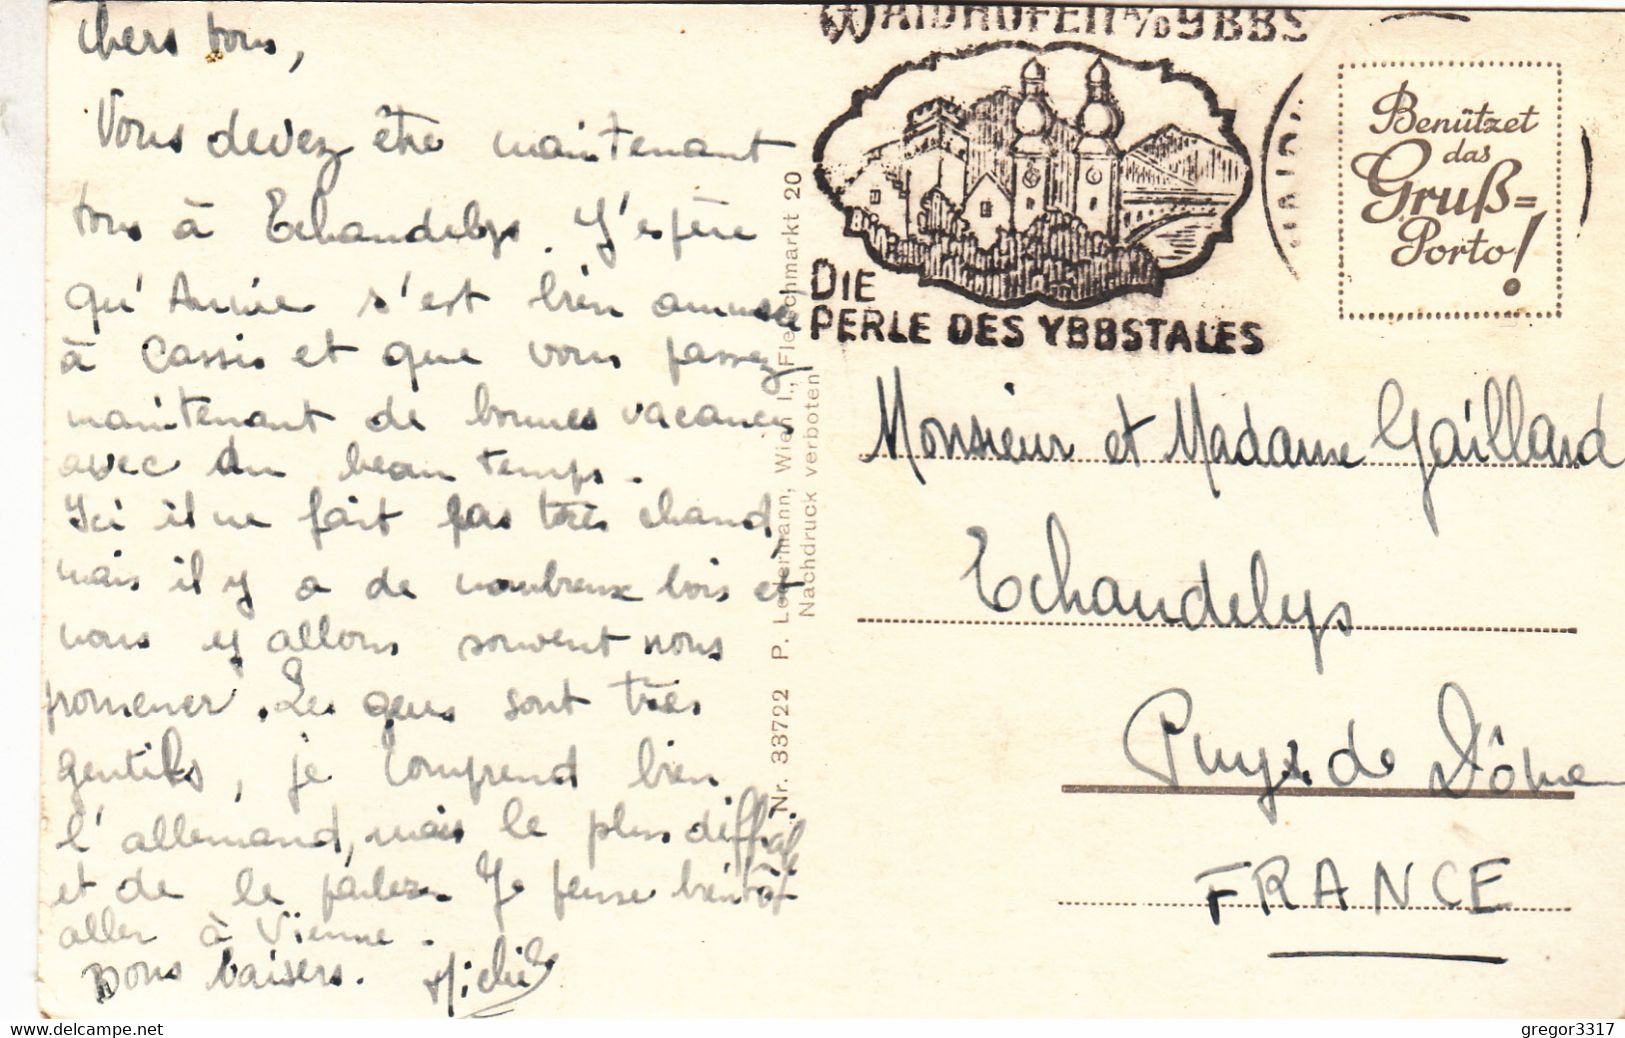 Chers tous,
Vous devez être maintenant
tous à Echandelys. J'espère
qu'Annie s'est bien amusée
à Cassis et que vous passez
maintenant de bonnes vacances
avec du beau temps.
Ici il ne fait pas très chaud
mais il y a de nombreux bois et
nous y allons souvent nous
promener. Les gens sont très
gentils, je comprend bien
l'allemand, mais le plus difficile
et de le parler. Je pense bientôt
aller à Vienne.
Bons baisers.
Nr. 33722 P. Ledermann, Wien I., Fleischmarkt 20
Nachdruck verboten
WAIDHOFEN A/D YBBS
DIE
PERLE DES YBBSTALES
Benützet
das
Gruß=
Porto!
Monsieur et Madame Gaillard
Echandelys
Puys de Dôme
FRANCE
delcampe.net
gregor3317